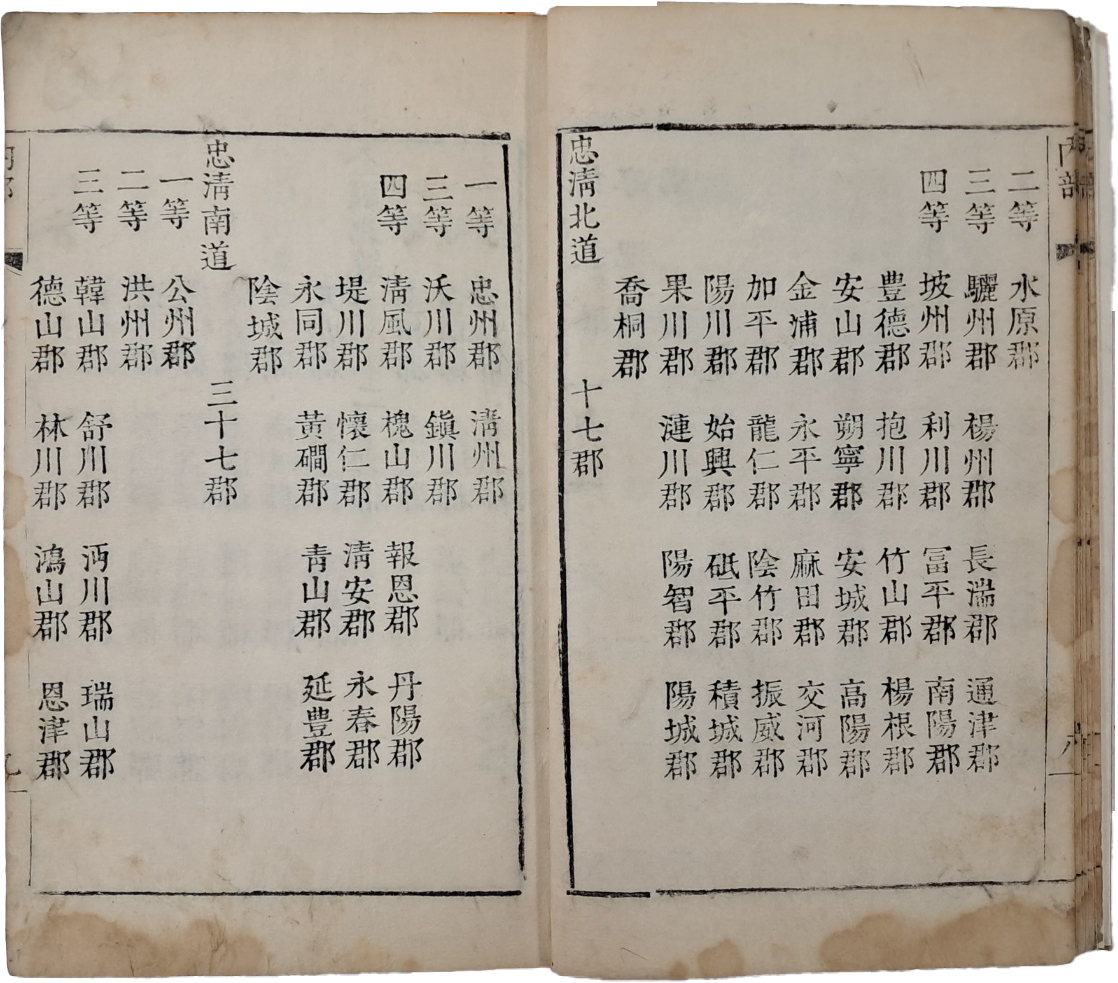 內部
八
二等 水原郡
三等 驪州郡 楊州郡 長湍郡 通津郡
四等 坡州郡 利川郡 富平郡 南陽郡
豊德郡 抱川郡 竹山郡 楊根郡
安山郡 朔寧郡 安城郡 高陽郡
金浦郡 永平郡 麻田郡 交河郡
加平郡 龍仁郡 陰竹郡 振威郡
陽川郡 始興郡 砥平郡 積城郡
果川郡 漣川郡 陽智郡 陽城郡
喬桐郡
忠淸北道 十七郡
一等 忠州郡 淸州郡
三等 沃川郡 鎭川郡
四等 淸風郡 槐山郡 報恩郡 丹陽郡
堤川郡 懷仁郡 淸安郡 永春郡
永同郡 黃磵郡 靑山郡 延豊郡
陰城郡
忠淸南道 三十七郡
一等 公州郡
二等 洪州郡
三等 韓山郡 舒川郡 沔川郡 瑞山郡
德山郡 林川郡 鴻山郡 恩津郡